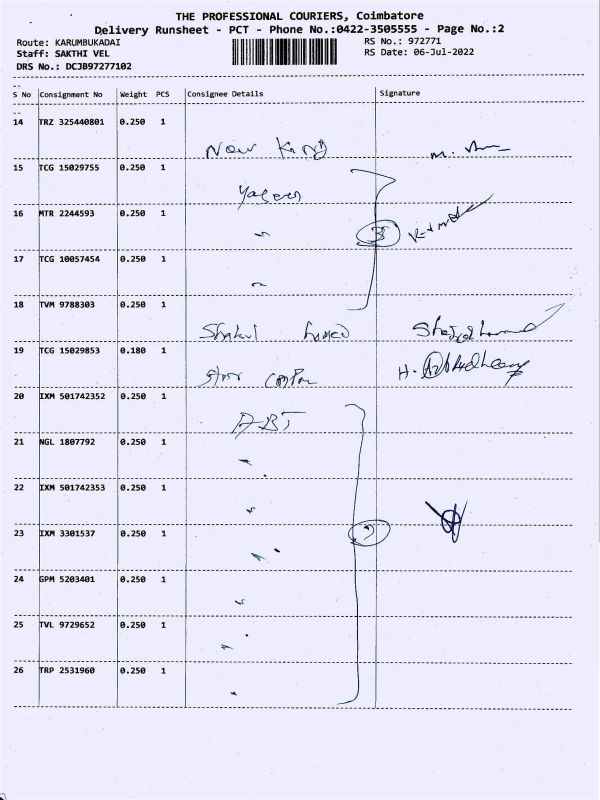 THE PROFESSIONAL COURIERS, Coimbatore
Delivery Runsheet - PCT - Phone No.:0422-3505555 - Page No.:2
Route: KARUMBUKADAI RS No.: 972771
Staff: SAKTHI VEL RS Date: 06-Jul-2022
DRS No.: DCJB97277102
S No Consignment No Weight PCS Consignee Details Signature
14 TRZ 325440801 0.250 1
New King
15 TCG 15029755 0.250 1
Yaseen
16 MTR 2244593 0.250 1
3
17 TCG 10057454 0.250 1
18 TVM 9788303 0.250 1
Shahul hameed
19 TCG 15029853 0.180 1
Star
20 IXM 501742352 0.250 1
ABT
21 NGL 1807792 0.250 1
22 IXM 501742353 0.250 1
23 IXM 3301537 0.250 1
24 GPM 5203401 0.250 1
25 TVL 9729652 0.250 1
26 TRP 2531960 0.250 1